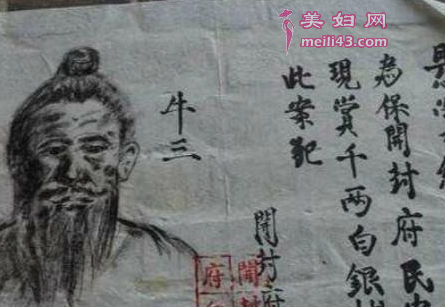 美妇网
meili43.com
为保開封府民
現賞千两白銀
此案犯
牛三
開封府
開封
府